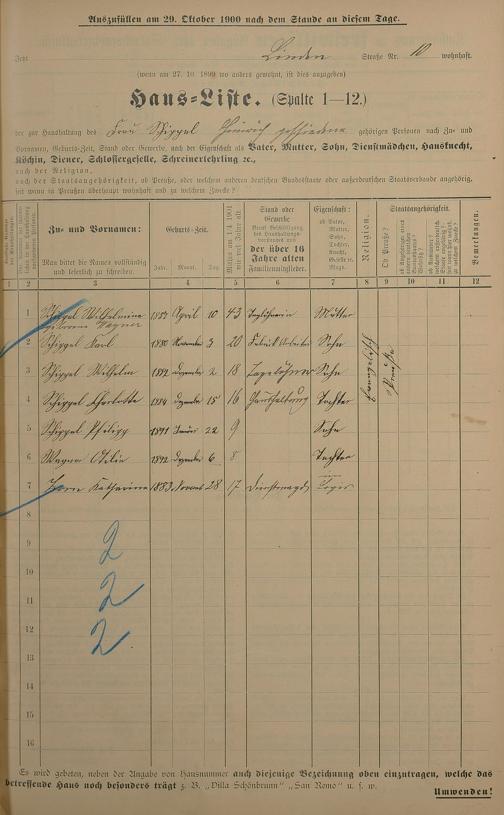 Auszufüllen am 29. Oktober 1900 nach dem Stande an diesem Tage.
Jetzt Linden Straße Nr. 10 wohnhaft.
(wenn am 27. 10. 1899 wo anders gewohnt, ist dies anzugeben)
Haus-Liste. (Spalte 1—12.)
der zur Haushaltung des Frau Schippel Heinrich geschiedene gehörigen Personen nach Zu- und
Vornamen, Geburts-Zeit, Stand oder Gewerbe, nach der Eigenschaft als Vater, Mutter, Sohn, Dienstmädchen, Hausknecht,
Köchin, Diener, Schlossergeselle, Schreinerlehrling ꝛc.,
nach der Religion,
nach der Staatsangehörigkeit, ob Preuße, oder welchem anderen deutschen Bundesstaate oder außerdeutschen Staatsverbande angehörig,
seit wann in Preußen überhaupt wohnhaft und zu welchem Zwecke?
Zu- und Vornamen:
Man bittet die Namen vollständig
und leserlich zu schreiben.
Geburts-Zeit.
Jahr. Monat. Tag.
Stand oder
Gewerbe
der über 16
Jahre alten
Familienmitglieder.
Eigenschaft:
ob Vater,
Mutter,
Sohn,
Tochter,
Knecht,
Geselle u.
Magd.
Religion.
Staatsangehörigkeit.
Ob Preuße?
Bemerkungen.
1 2 3 4 5 6 7 8 9 10 11 12
1 Schippel Wilhelmine 1857 April 10 43 Mutter
geborene Wagner
2 Schippel Karl 1880 November 3 20 Fabrikarbeiter Sohn
3 Schippel Wilhelm 1882 Dezember 2 18 Tagelöhner Sohn
4 Schippel Charlotte 1884 Dezember 15 16 Haushaltung Tochter
5 Schippel Philipp 1891 Januar 22 9 Sohn
6 Wagner Otilie 1892 Dezember 6 8 Tochter
7 Katharina 1883 November 28 17 Dienstmagd Logis
evangelisch
Preuße
8
9
10
11
12
13
14
15
16
2
2
2
Es wird gebeten, neben der Angabe von Hausnummer auch diejenige Bezeichnung oben einzutragen, welche das
betreffende Haus noch besonders trägt z. B. „Villa Schönbrunn" „San Remo" u. s. w.
Umwenden!